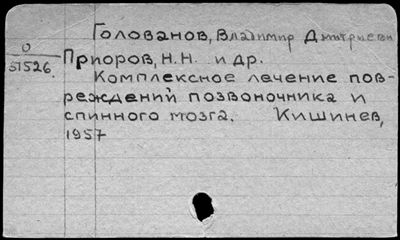 Голованов, Владимир Дмитриевич
О
51526.
Приоров, Н.Н. и др.
Комплексное лечение пов-
реждений позвоночника и
спинного мозга. Кишинев,
1957